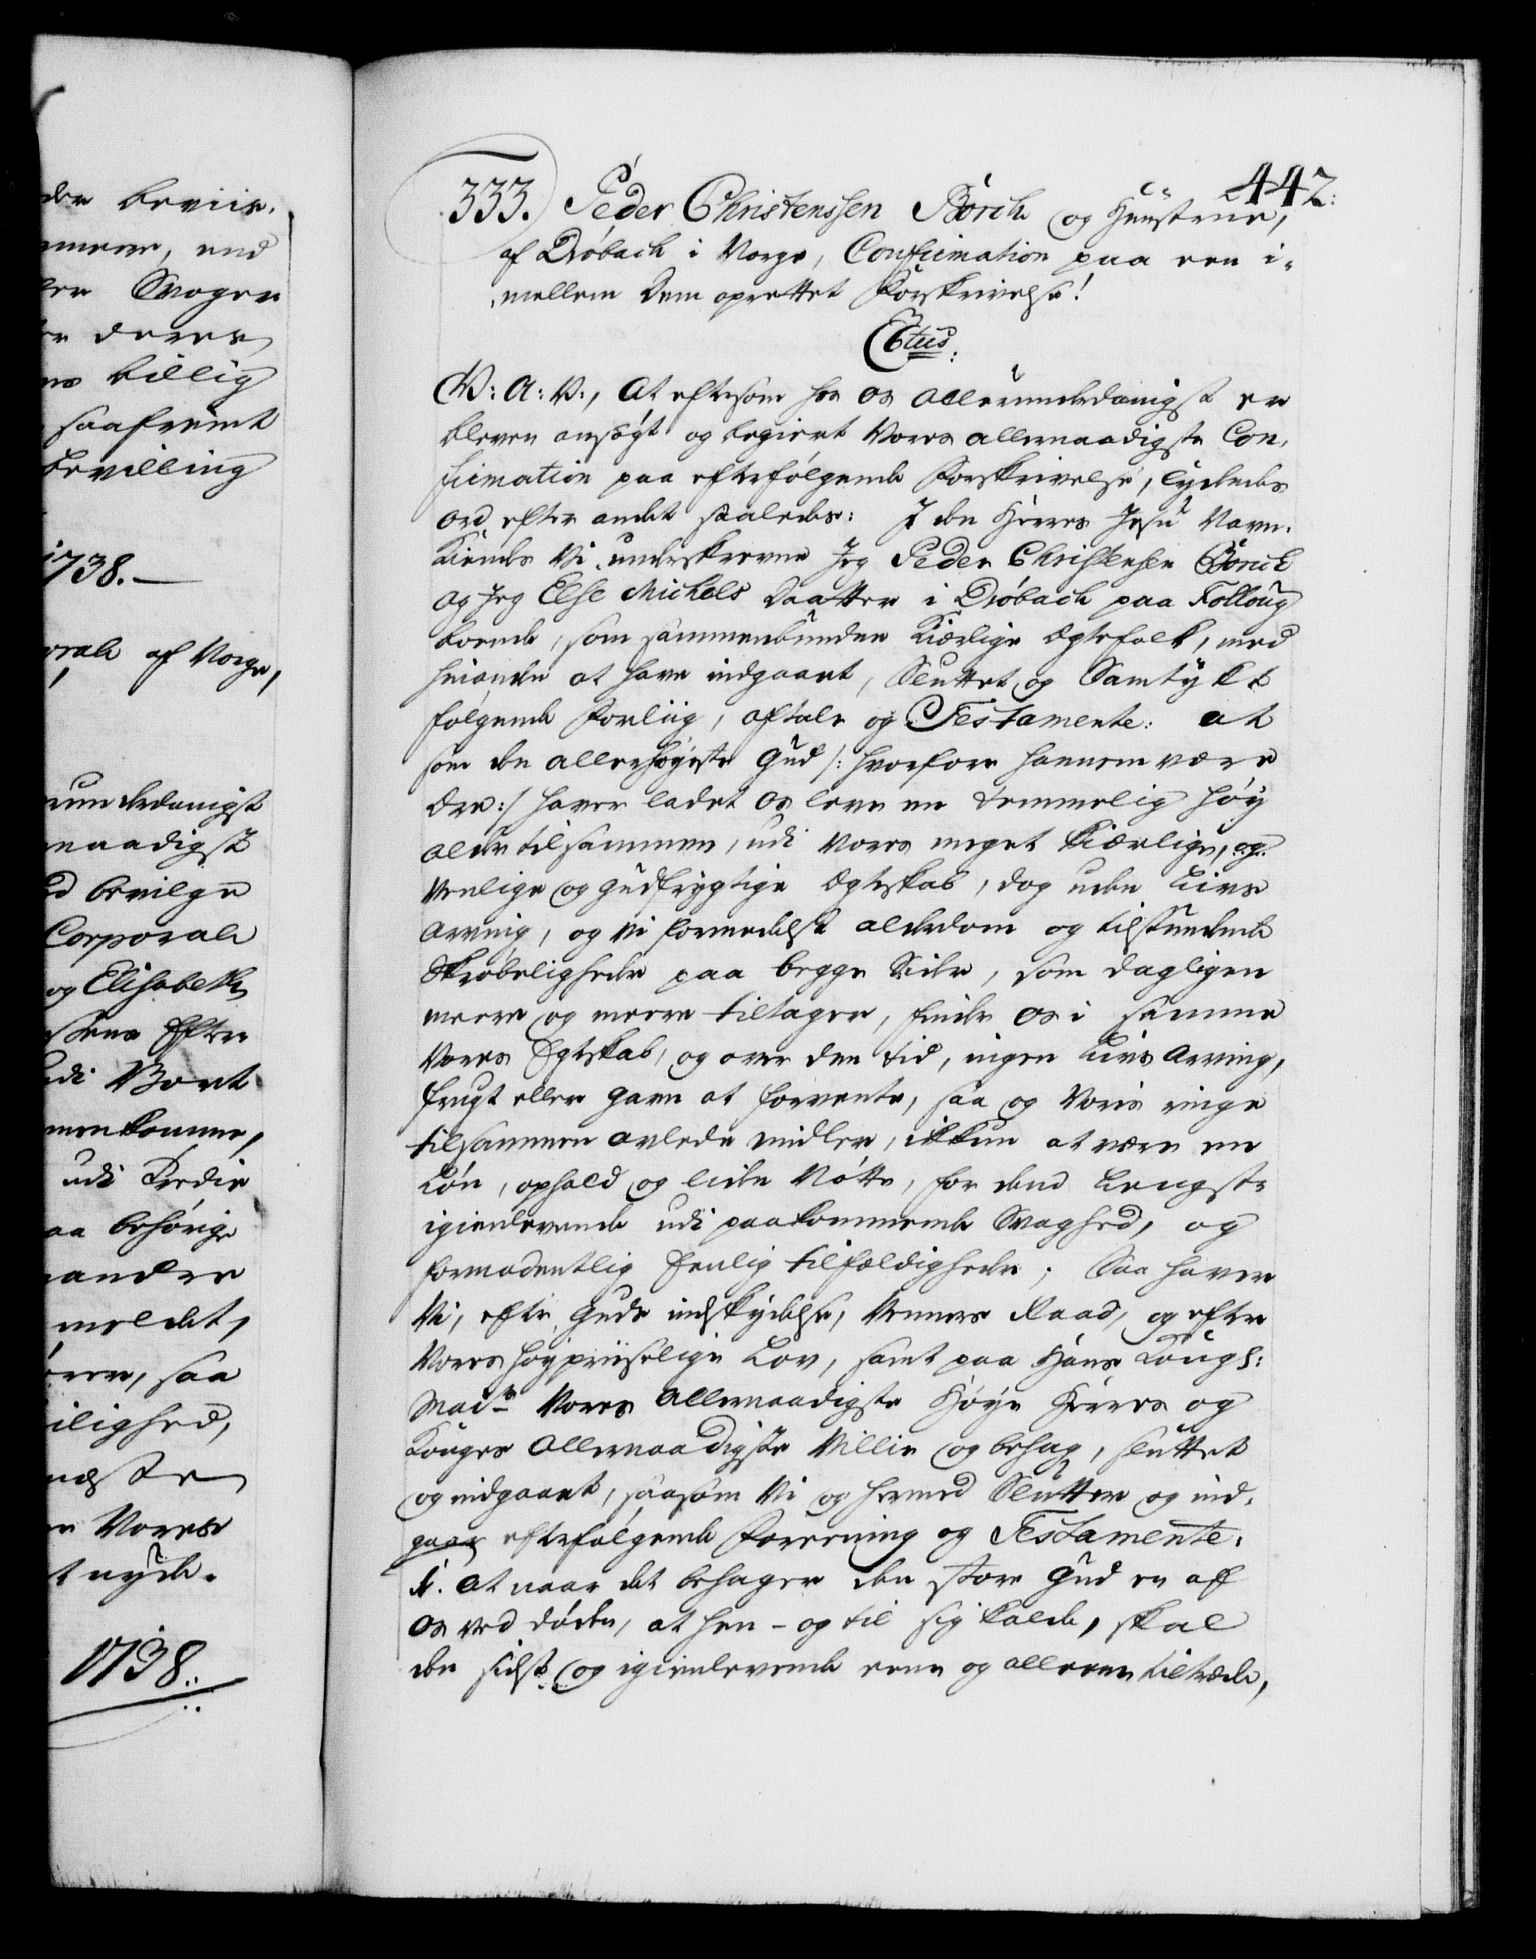 der beviis.
mere, end
ler Svoger
deres
billig
saafremt
bevilling
1738.
af Norge,
underdanigst
naadigst
bevilge
Corporal
og Elisabeth
Efter
udi Bort
menkomme,
udi Tredie
aa behørige
andre
meldet,
saa
ilighed,
næste
Vores
t nyde.
1738.
442.
333. Peder Christenssen Borch og Hustrue,
af Drøbach i Norge, Confirmation paa een i-
mellem dem oprettet Forskrivelse!
C6tus.
V: A: V., At eftersom hos os allerunderdanigst er
bleven ansøgt og begiert Vores allernaadigste Con-
firmation paa efterfølgende Forskrivelse, lydende
ord efter andet saaledes: I den Herres Jesu Navn.
Kiendes Vi underskrevne Jeg Peder Christensen Borck
og Jeg Else Michels Daatter i Drøbach paa Følloug
boende, som sammenbundne Kierlige Ægtefolk, med
hinanden at have indgaaet, Sluttet og Samtykt
følgende Forliig, aftale og Testamente: at
som den allerhøyeste Gud /: hvorfore hannem være
ære :/ haver ladet os leve en temmelig høy
alder tilsammen, udi Vores meget Kierlige, og
venlige og gudfrygtige Ægteskab, dog uden Livs
Arving, og Vi formedelst alderdom og tilstundende
Skrøbeligheder paa begge Sider, som dagligen
meere og meere tiltager, finder os i samme
Vores Egteskab, og over den tid, ingen Livs Arving,
frugt eller Gavn at forvente, saa og Voris ringe
tilsammen avlede midler, ikkun at være en
Løn, ophold og liden Nøtte, for dend Lengst-
igienlevende udi paakommende Svaghed, og
formodentlig Eenlig tilfældigheder; Saa haver
Vi, efter Guds indskydelse, Venners Raad, og efter
Vores høypriiselige Lov, samt paa Hans Kongl:
Mai:ts Vores Allernaadigste Høye Herres og
Konges Allernaadigste Villie og behag, sluttet
og indgaaet, saasom Vi og hermed Slutter og ind-
gaar efterfølgende Foreening og Testamente:
1. At naar det behager den store Gud en af
os ved døden, at hen- og til sig kalde, skal
den sidst og igienlevende eene og alleene tiltræde,